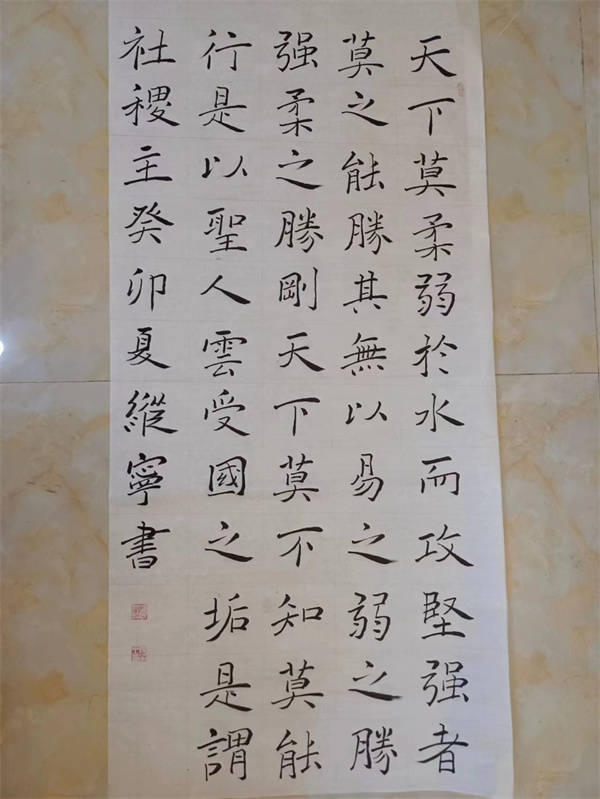 天下莫柔弱於水而攻堅强者
莫之能勝其無以易之弱之勝
强柔之勝剛天下莫不知莫能
行是以聖人雲受國之垢是謂
社稷主癸卯夏縱寧書